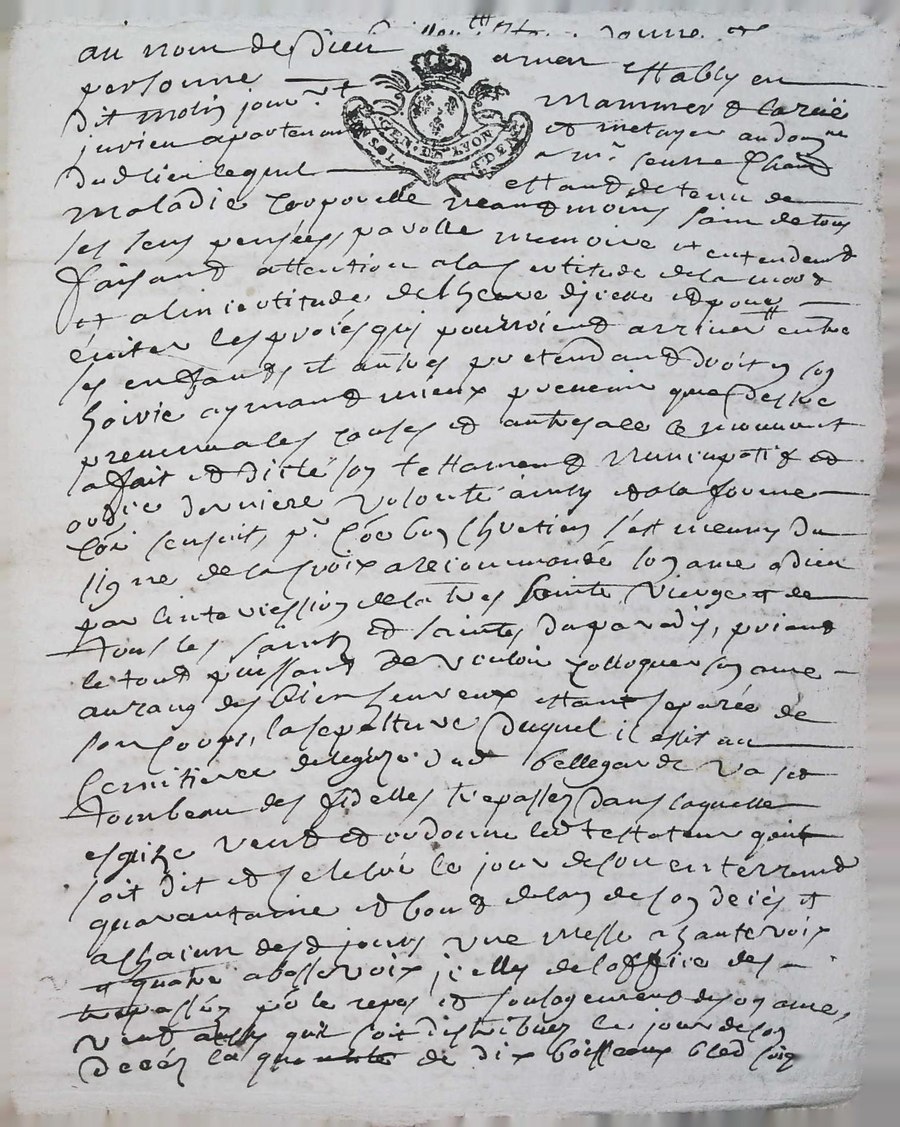 au nom de Dieu
personne estably en
dit molin jour
jurien apartenant et metayer au dom
dud lieu lequel a mr
estant detenu de
maladie corporelle neantmoins sain de tous
ses sens pensées, parolle memoire et entendemt
faisant attention a la certitude de la mort
et a lincertitude de lheure dicelle et pour
éviter les procés qui pourroient arriver entre
ses enfants et autres pretendant droit en son
hoirie aymant mieux prevenir que destre
prevenu a les causes et autres a ce le mouvant
a fait et dicté son testament nuncupatif et
ordre derniere volonté ainsy et a la forme
coe sensuit, pr coe bon chretien sest meuny du
signe de la croix a recommandé son ame a dieu
par lintercession de la tres sainte Vierge et de
tous les saints et saintes du paradis, priant
le tout puissant de vouloir colloquer son ame
au rang des bien heureux estant separée de
son corps, la sepulture duquel il eslit au
cemitiere de legise dud bellegarde va et
tombeau des fidelles trepassez dans laquelle
esglize veut et ordonne led testateur quil
soit dit et celebré le jour de son enterremt
quarantaine et bout de lan de son decés et
a chacun desd jours une messe a haute voix
et quatre a basse voix icelles de loffice des
trepassés pr le repos et soulagement de son ame,
veut aussy quil soit distribuez le jour de son
decéz la quantité de dix boisseaux bled seig